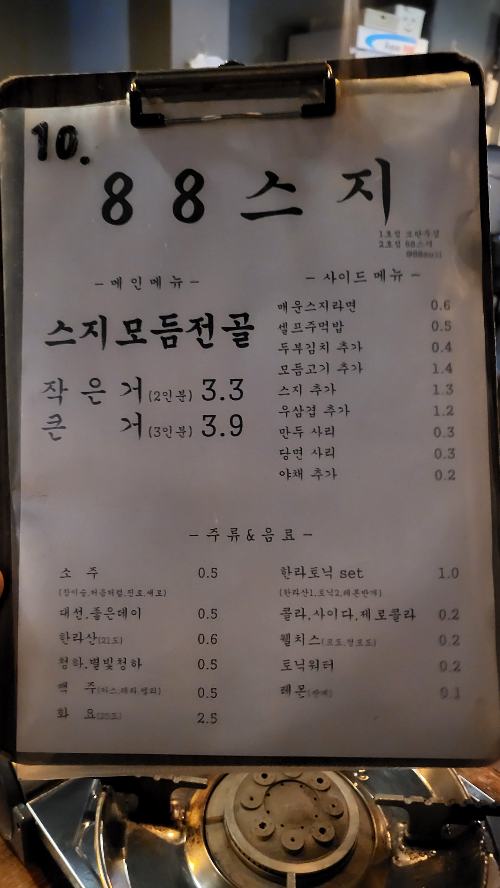 10.
88스지
1호점 모란우정
2호점 88스지
- 메인메뉴 -
스지모듬전골
작 은 거(2인분) 3.3
큰 거(3인분) 3.9
- 사이드 메뉴 -
매운스지라면 0.6
셀프주먹밥 0.5
두부김치 추가 0.4
모듬고기 추가 1.4
스지 추가 1.3
우삼겹 추가 1.2
만두 사리 0.3
당면 사리 0.3
야채 추가 0.2
- 주류&음료 -
소 주 0.5
(참이슬,처음처럼,진로,새로)
대선,좋은데이 0.5
한라산(21도) 0.6
청하,별빛청하 0.5
맥 주(카스,테라,켈리) 0.5
화 요(25도) 2.5
한라토닉 set 1.0
(한라산1,토닉2,레몬반개)
콜라,사이다,제로콜라 0.2
웰치스(포도,청포도) 0.2
토닉워터 0.2
레몬(반개) 0.1